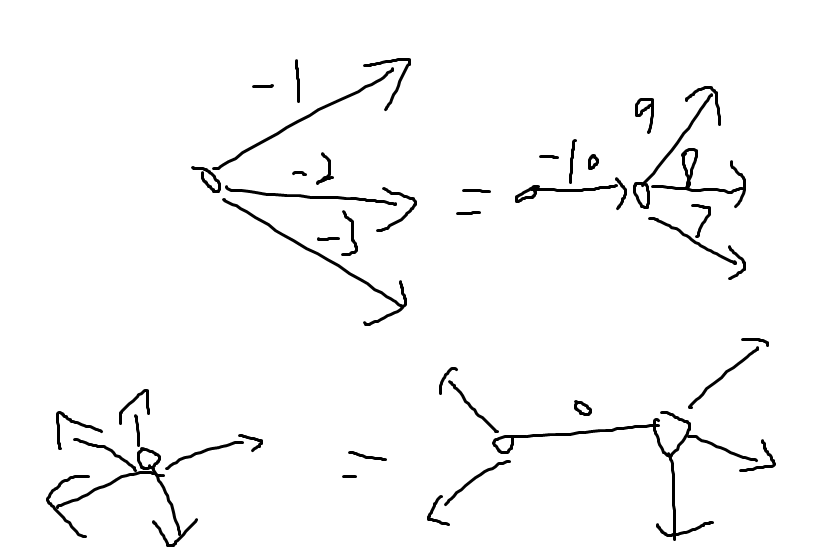 -1
-2
-3
=
-10
9
8
7
=
0